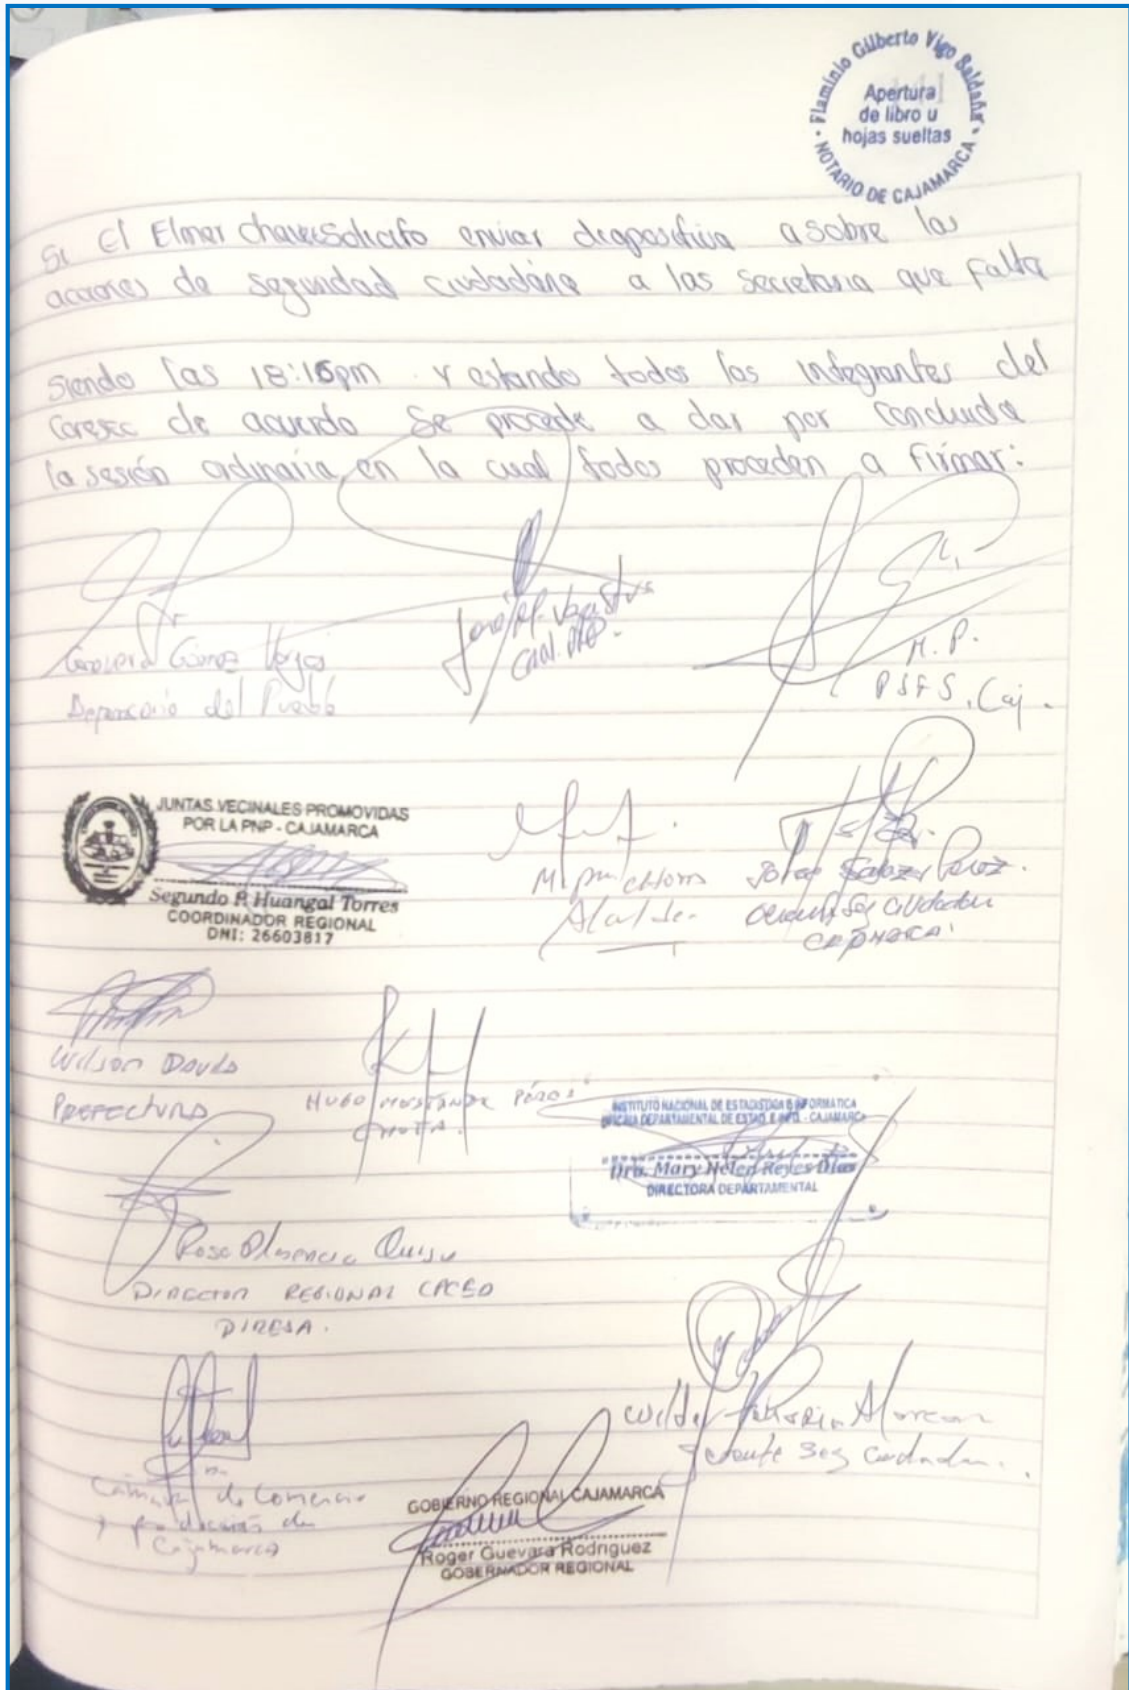 Flaminio Gilberto Vigo Saldaña
Apertura
de libro u
hojas sueltas
NOTARIO DE CAJAMARCA
Si El Elmer chavesSolicito enviar diapositiva a sobre las
acciones de seguridad ciudadana a las secretaria que falta
Siendo las 18:15pm y estando todos los integrantes del
Coresec de acuerdo Se procede a dar por Concluida
la sesión ordinaria, en la cual todos proceden a Firmar:
Gómez Vargas
Defensoría del Pueblo
José M.
Gral. PNP.
M. P.
P S F S. Caj.
JUNTAS VECINALES PROMOVIDAS
POR LA PNP - CAJAMARCA
Segundo P. Huangal Torres
COORDINADOR REGIONAL
DNI: 26603817
Alcalde
Salazar Perez
Seg Ciudadan
Wilson Davila
PREFECTURA
HUGO
CHOTA.
INSTITUTO NACIONAL DE ESTADISTICA E INFORMATICA
OFICINA DEPARTAMENTAL DE ESTAD. E INFO. - CAJAMARCA
Dra. Mary Helen Reyes Días
DIRECTORA DEPARTAMENTAL
Plasencia
DIRECTOR REGIONAL
DIRESA.
Wilder Alarcon
Gerente Seg Ciudadan.
Cámara de Comercio
y producción de
Cajamarca
GOBIERNO REGIONAL CAJAMARCA
Roger Guevara Rodriguez
GOBERNADOR REGIONAL